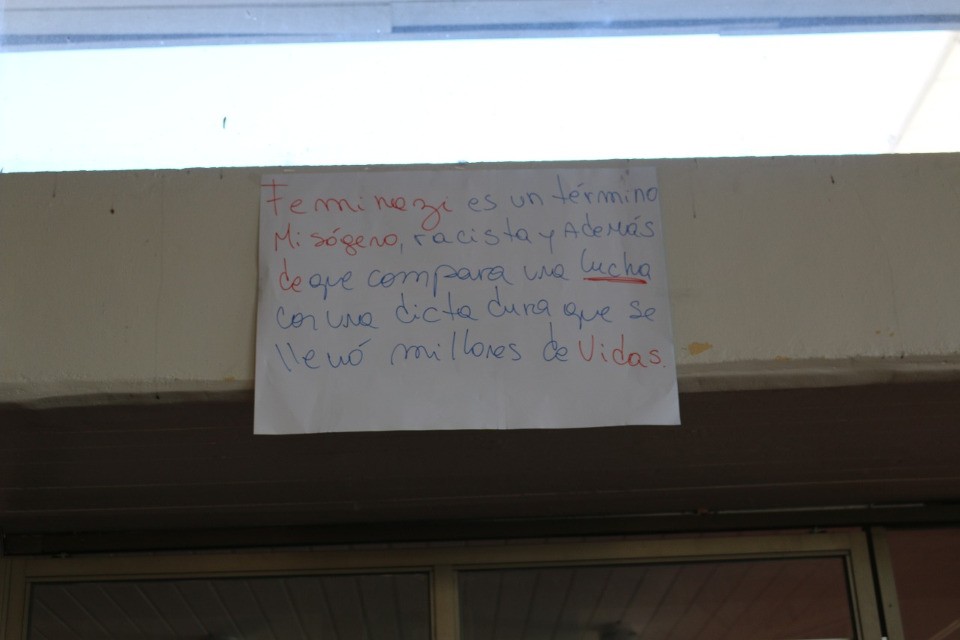 Feminazi es un término
Misógeno, racista y Además
de que compara una lucha
con una dictadura que se
llevó millones de Vidas.